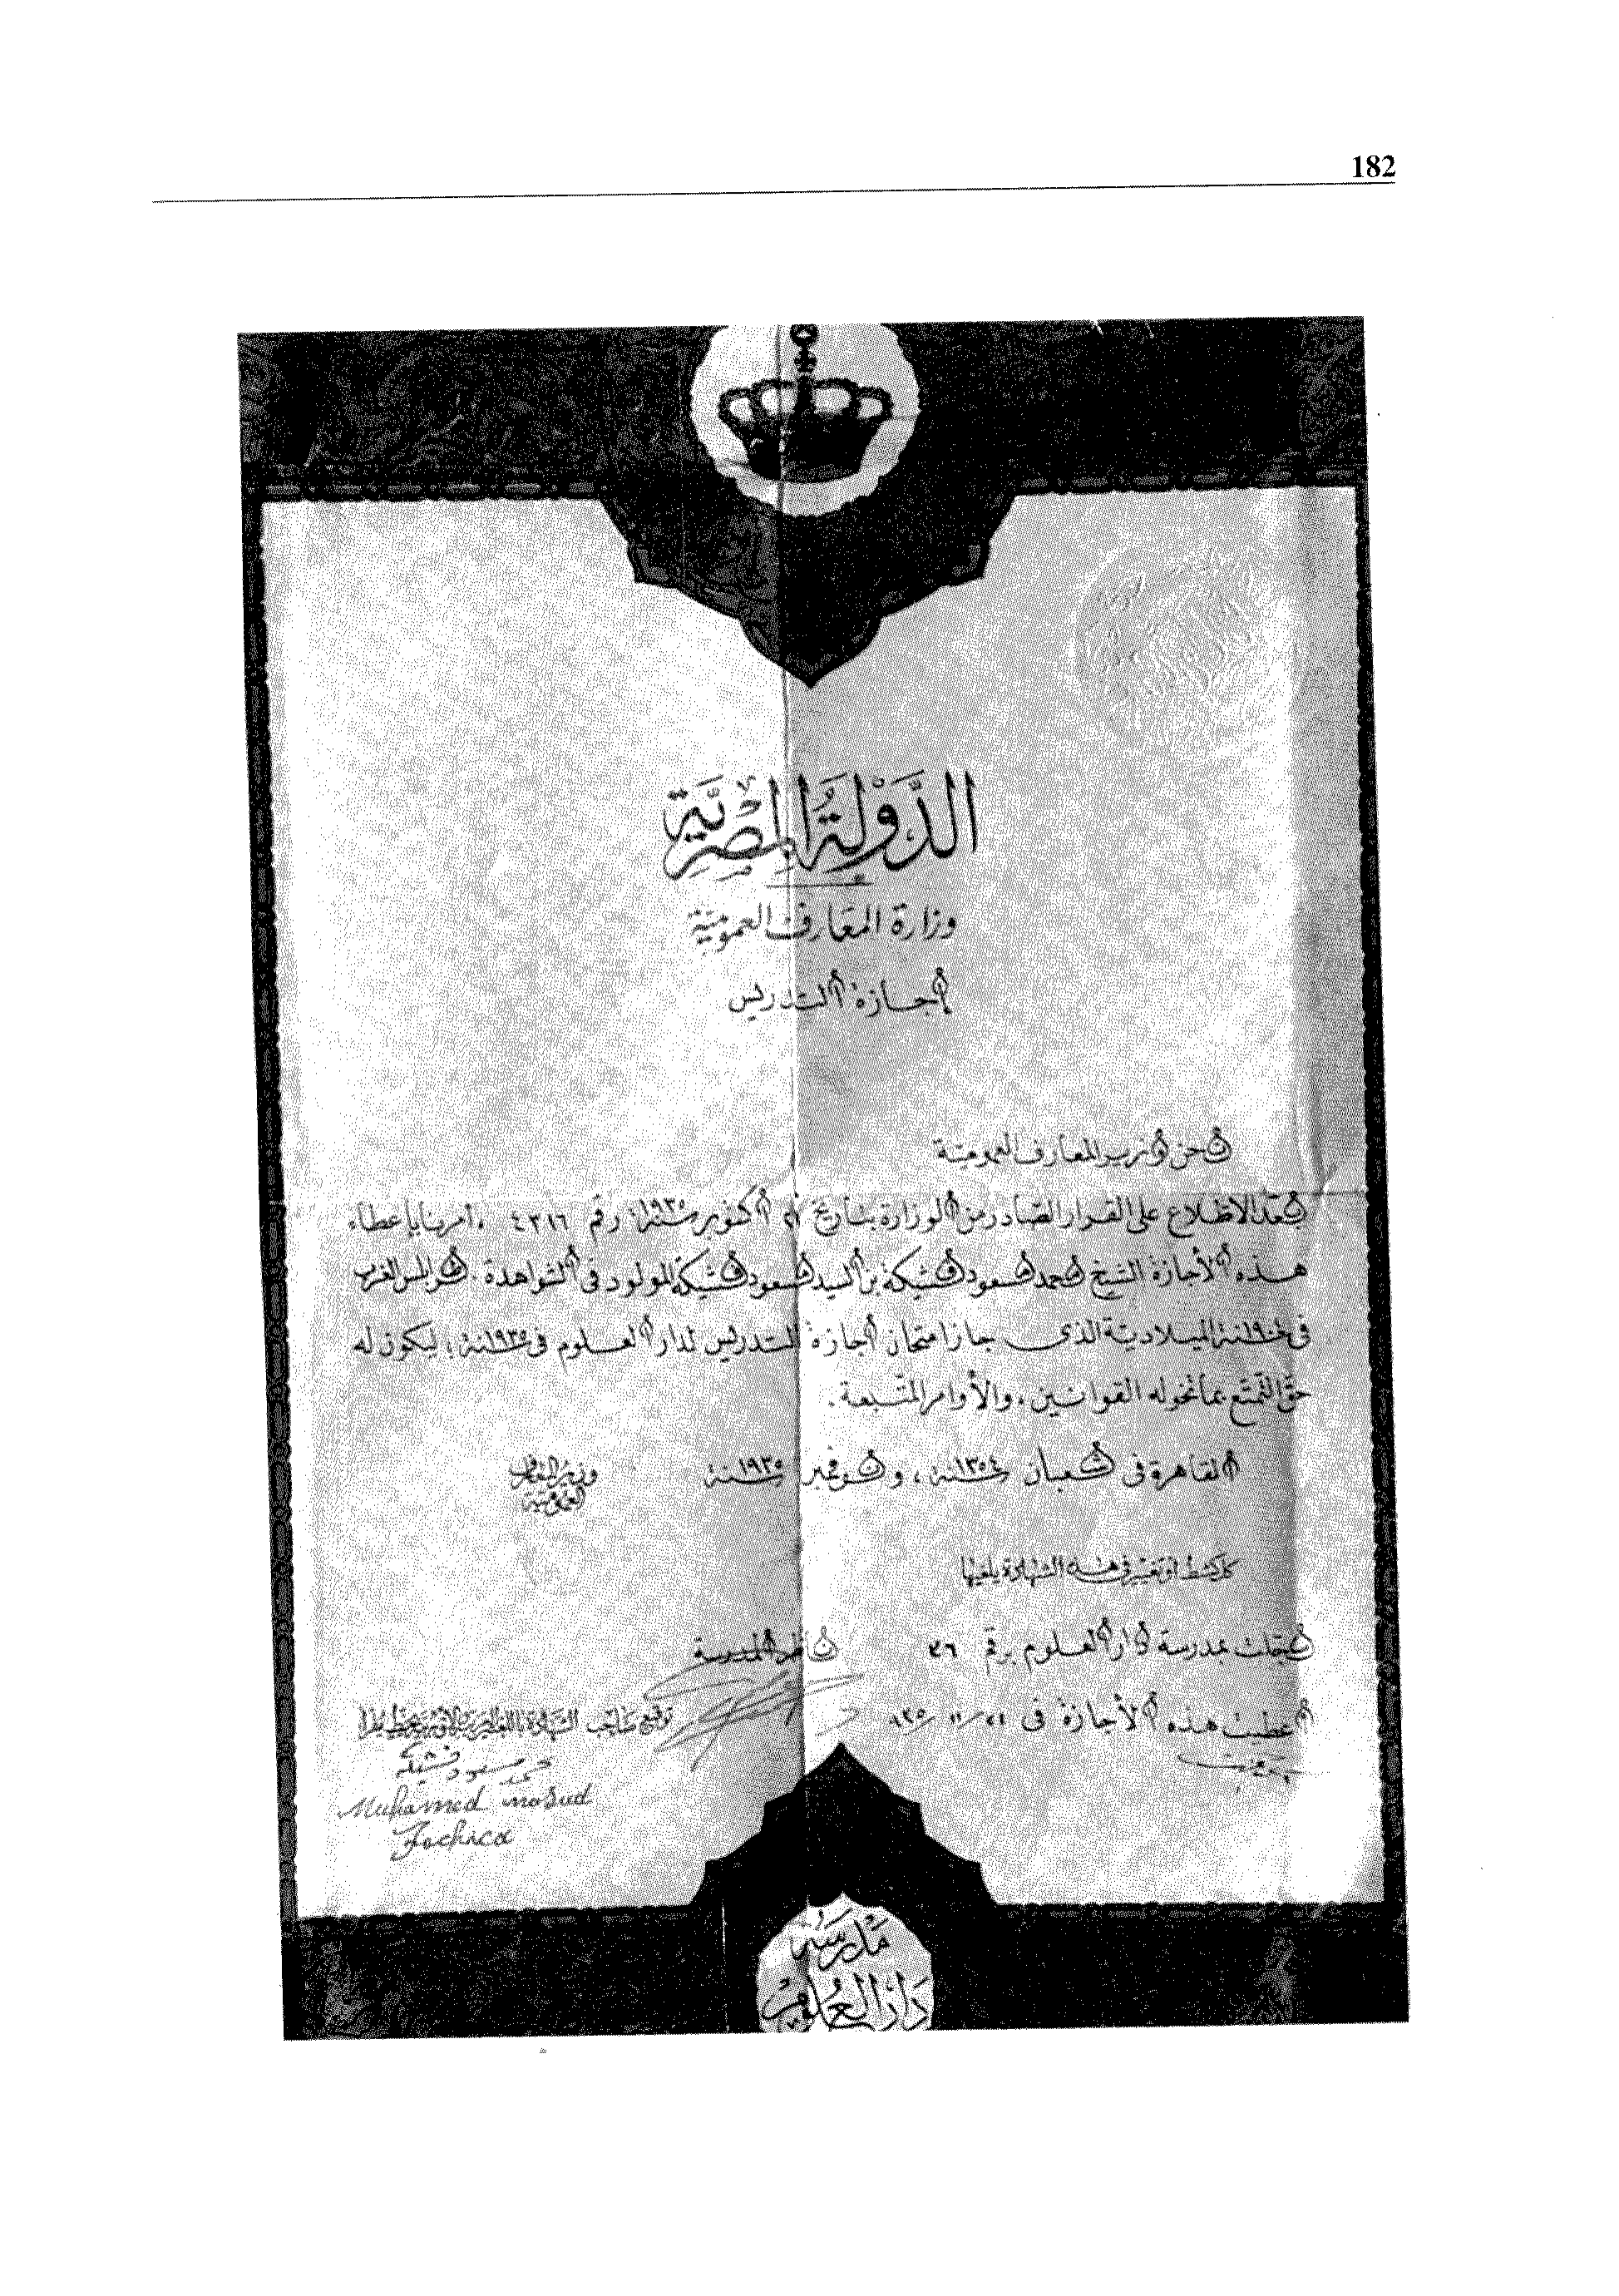 182
الدَّولة المصرية
وزارة المعَارف العمومية
إجازة التدريس
نحن وزير المعارف العمومية
بعد الاطلاع على القرار الصادر من الوزارة بتأريخ ٢١ أكتوبر سنة ١٩٣٥ رقم ٤٣١٦ ، أمرنا بإعطاء
هذه الأجازة الشيخ محمد مسعود فشيكة بن السيد مسعود فشيكة المولود فى الشواهدة . طرابلس الغرب
فى سنة الميلادية الذى جاز امتحان أجازة التدريس لدار العلوم فى سنة ١٩٣٥ ؛ ليكون له
حق التمتع بما تخوله القوانين ، والأوامر المتبعة .
القاهرة فى شعبان سنة ١٣٥٤ ، و نوفمبر سنة ١٩٣٥
وزير المعارف
العمومية
كل كشط أو تغيير فى هذه الشهادة يلغيها
سجلت بمدرسة دار العلوم برقم ٣٦
ناظر المدرسة
أعطيت هذه الأجازة فى ٢١/١١/٩٣٥
توقيع صاحب الشهادة
محمد مسعود فشيكه
Muhamed mosud
Fochica
مدرسة
دار العلوم